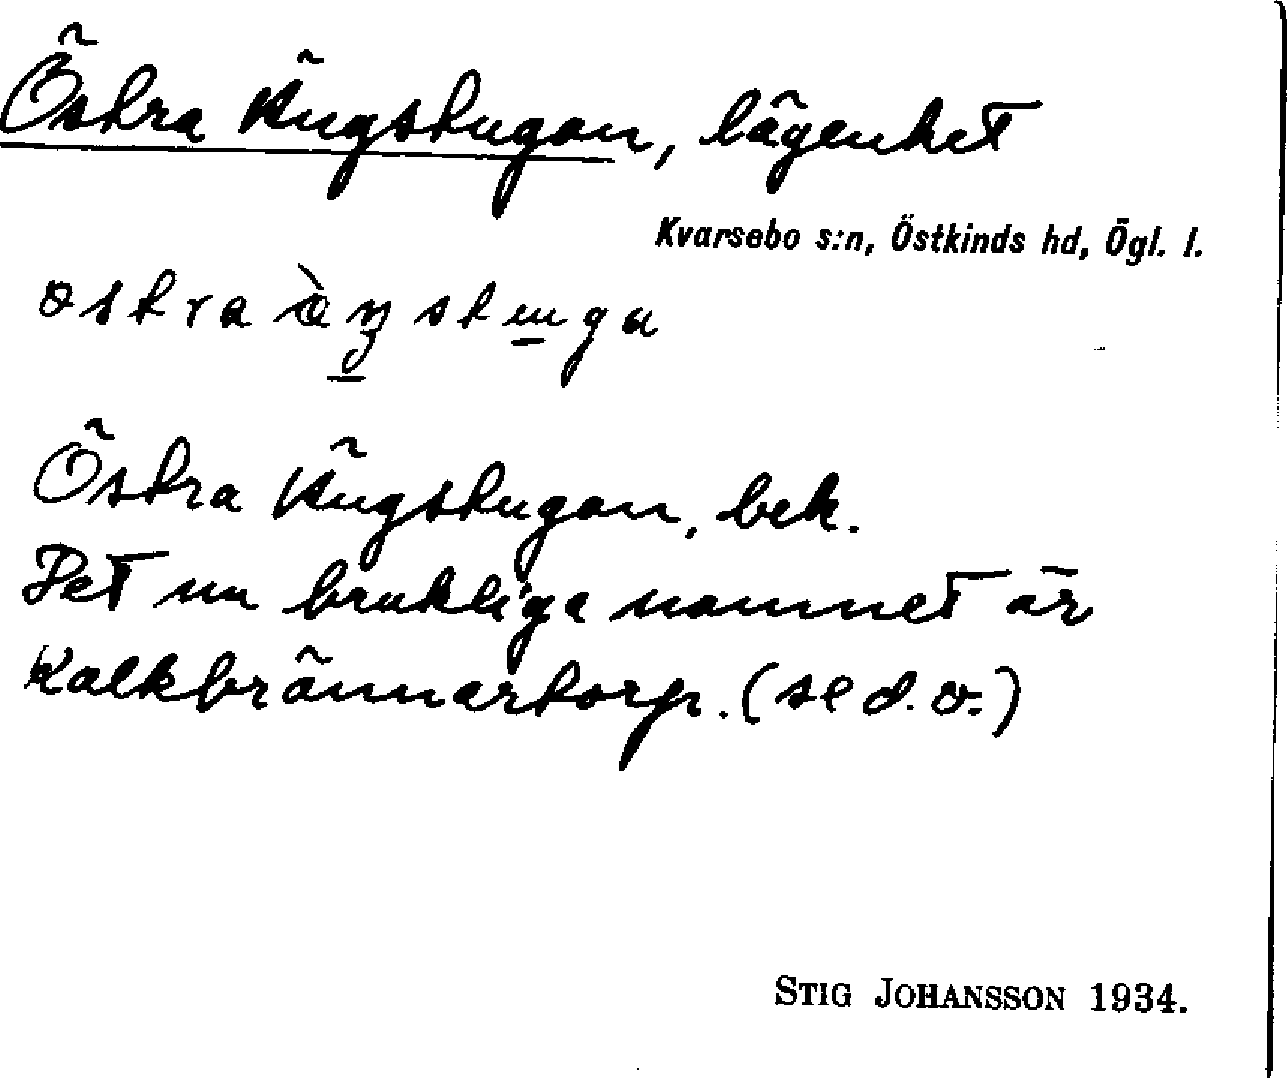 Östra Ängstugan, lägenhet
Kvarsebo s:n, Östkinds hd, Ögl. l.
Östra Ängstugan, bek.
Det nu brukliga namnet är
Kalkbrännartorp. (se d. o.)
STIG JOHANSSON 1934.